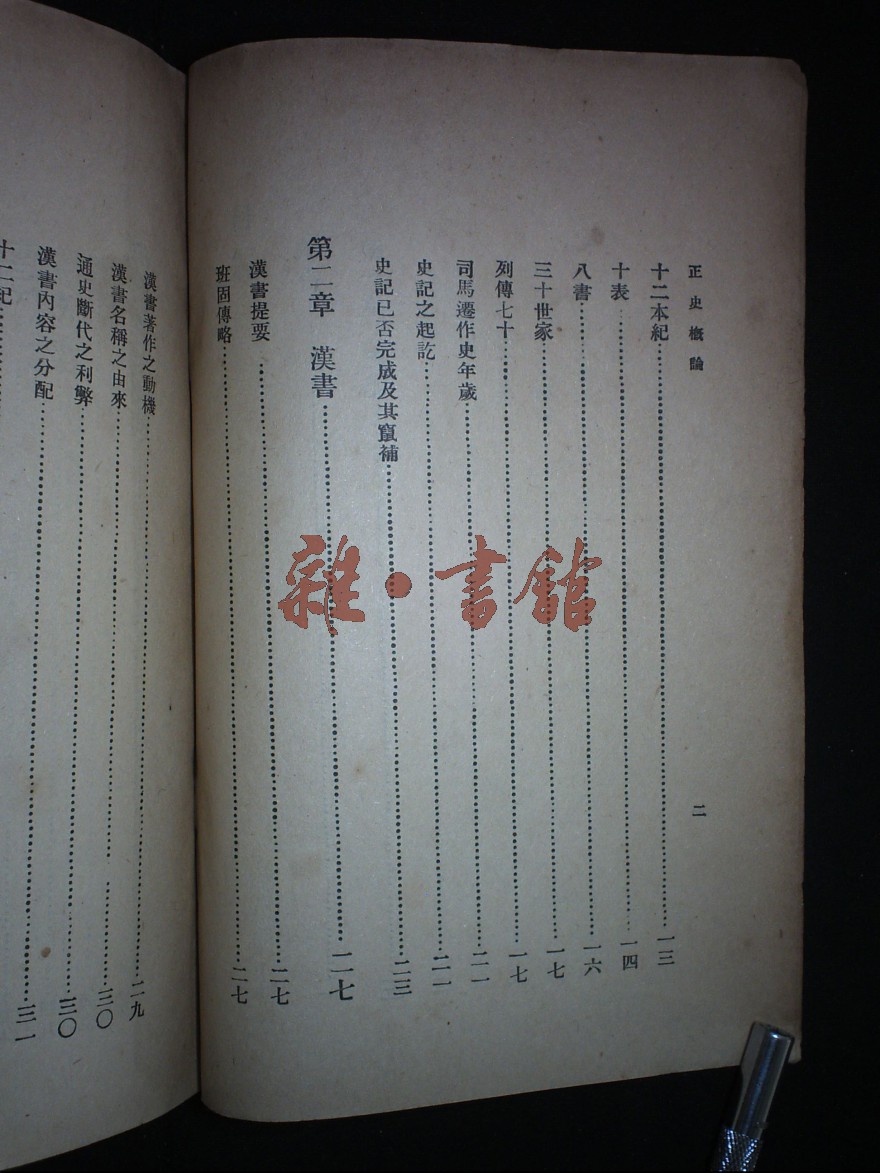 正史概論
二
十二本紀……一三
十表……一四
八書……一六
三十世家……一七
列傳七十……一七
司馬遷作史年歲……二一
史記之起訖……二一
史記已否完成及其竄補……二三
第二章 漢書……二七
漢書提要……二七
班固傳略……二七
漢書著作之動機……二九
漢書名稱之由來……三〇
通史斷代之利弊……三〇
漢書內容之分配……三一
十二紀……
雜·書館